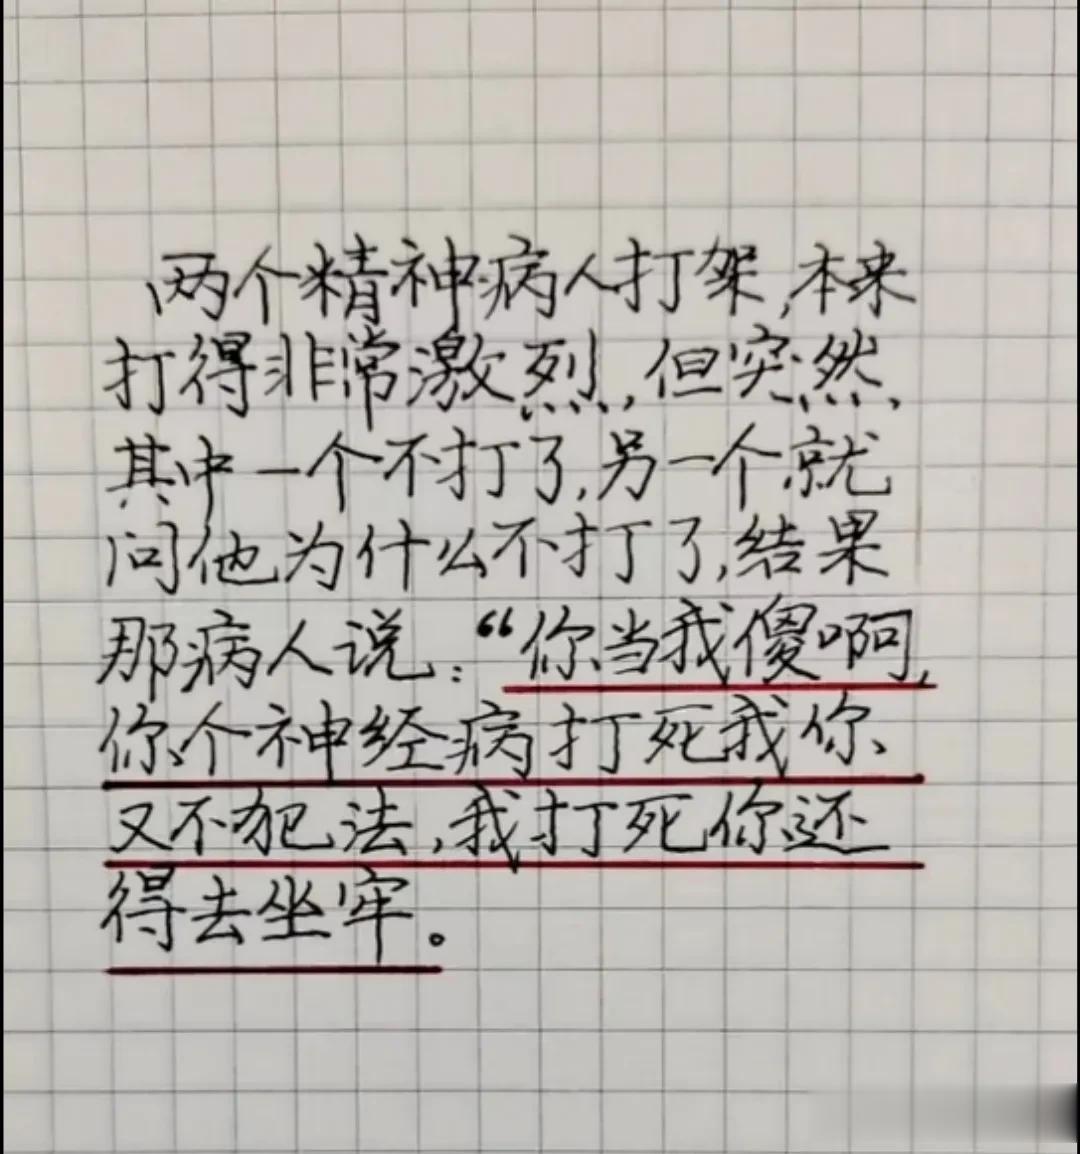 两个精神病人打架,本来
打得非常激烈,但突然
其中一个不打了,另一个就
问他为什么不打了,结果
那病人说:“你当我傻啊,
你个神经病打死我你
又不犯法,我打死你还
得去坐牢。